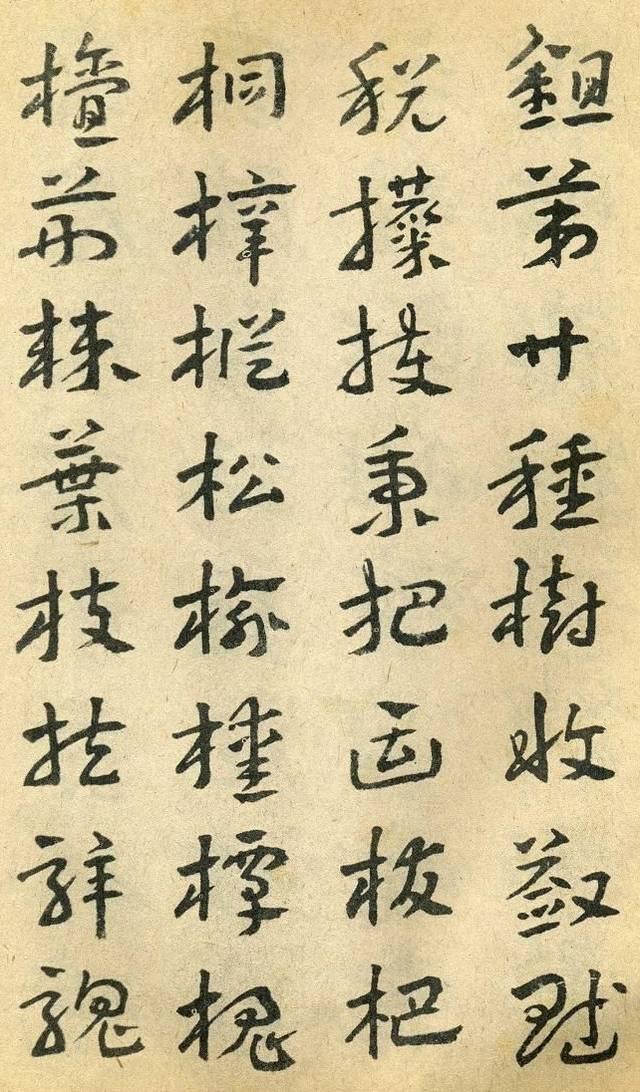 鉏第廿種樹收斂賦
稅攈穫秉把臿拔杷
桐梓樅松榆椿樗槐
檀荊棘葉枝扶騂騩